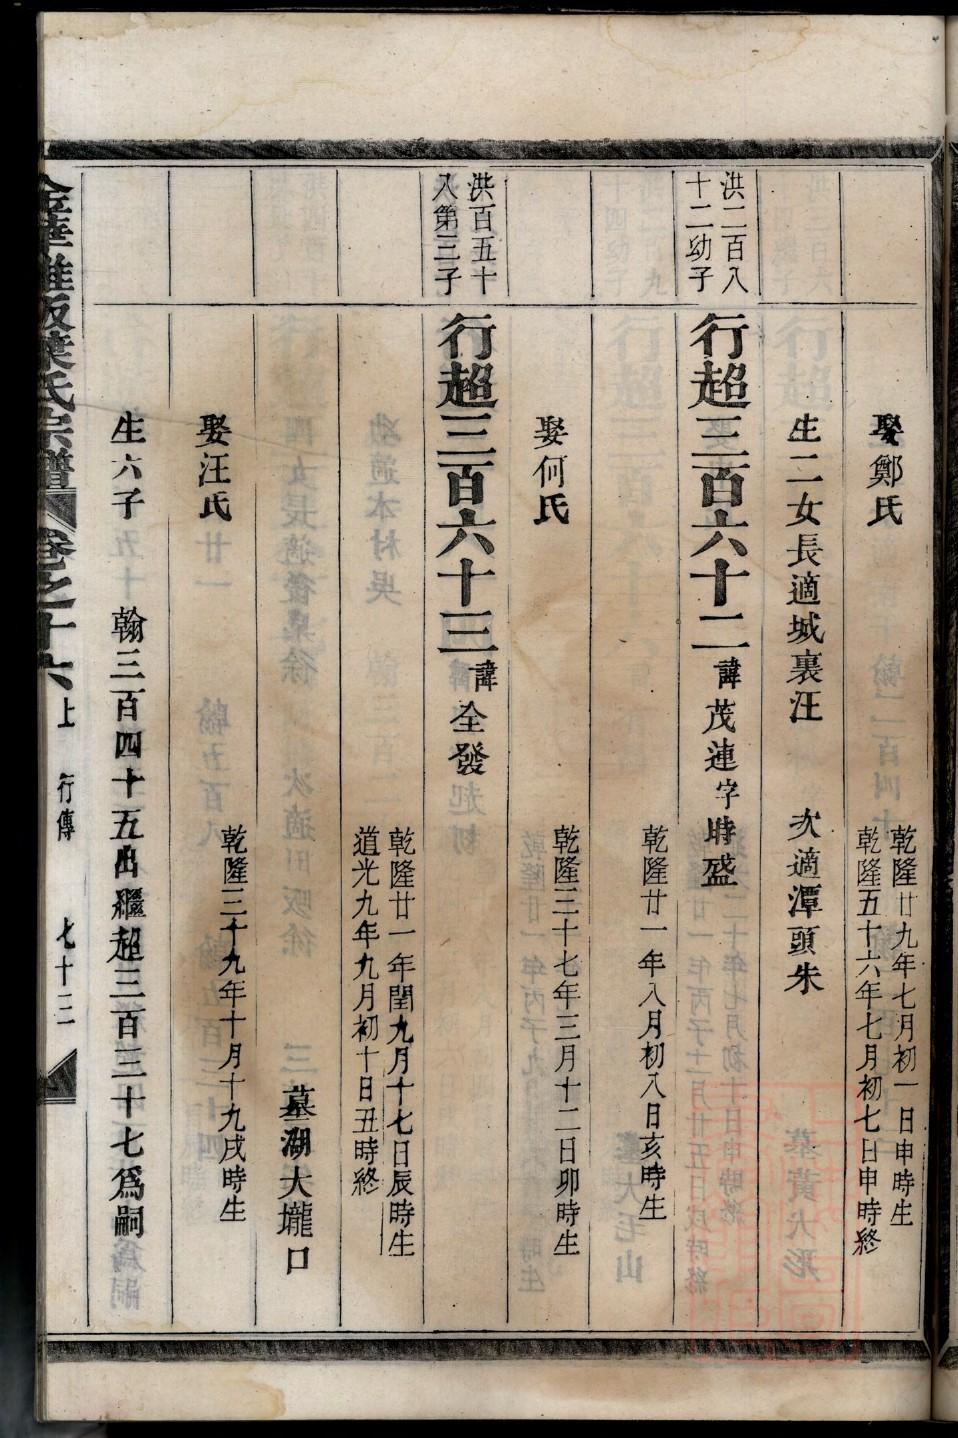 娶鄭氏
乾隆廿九年七月初一日申時生
乾隆五十六年七月初七日申時終
生二女長適城裏汪 次適潭頭朱
洪二百八
十二幼子
行超三百六十二諱茂連字時盛
乾隆廿一年八月初八日亥時生
娶何氏
乾隆三十七年三月十二日卯時生
洪百五十
八第三子
行超三百六十三諱全發
乾隆廿一年閏九月十七日辰時生
道光九年九月初十日丑時終
墓湖大壠口
娶汪氏
乾隆三十九年十月十九戌時生
生六子 翰三百四十五出繼超三百三十七爲嗣
氏宗譜 卷之十六上 行傳 七十三